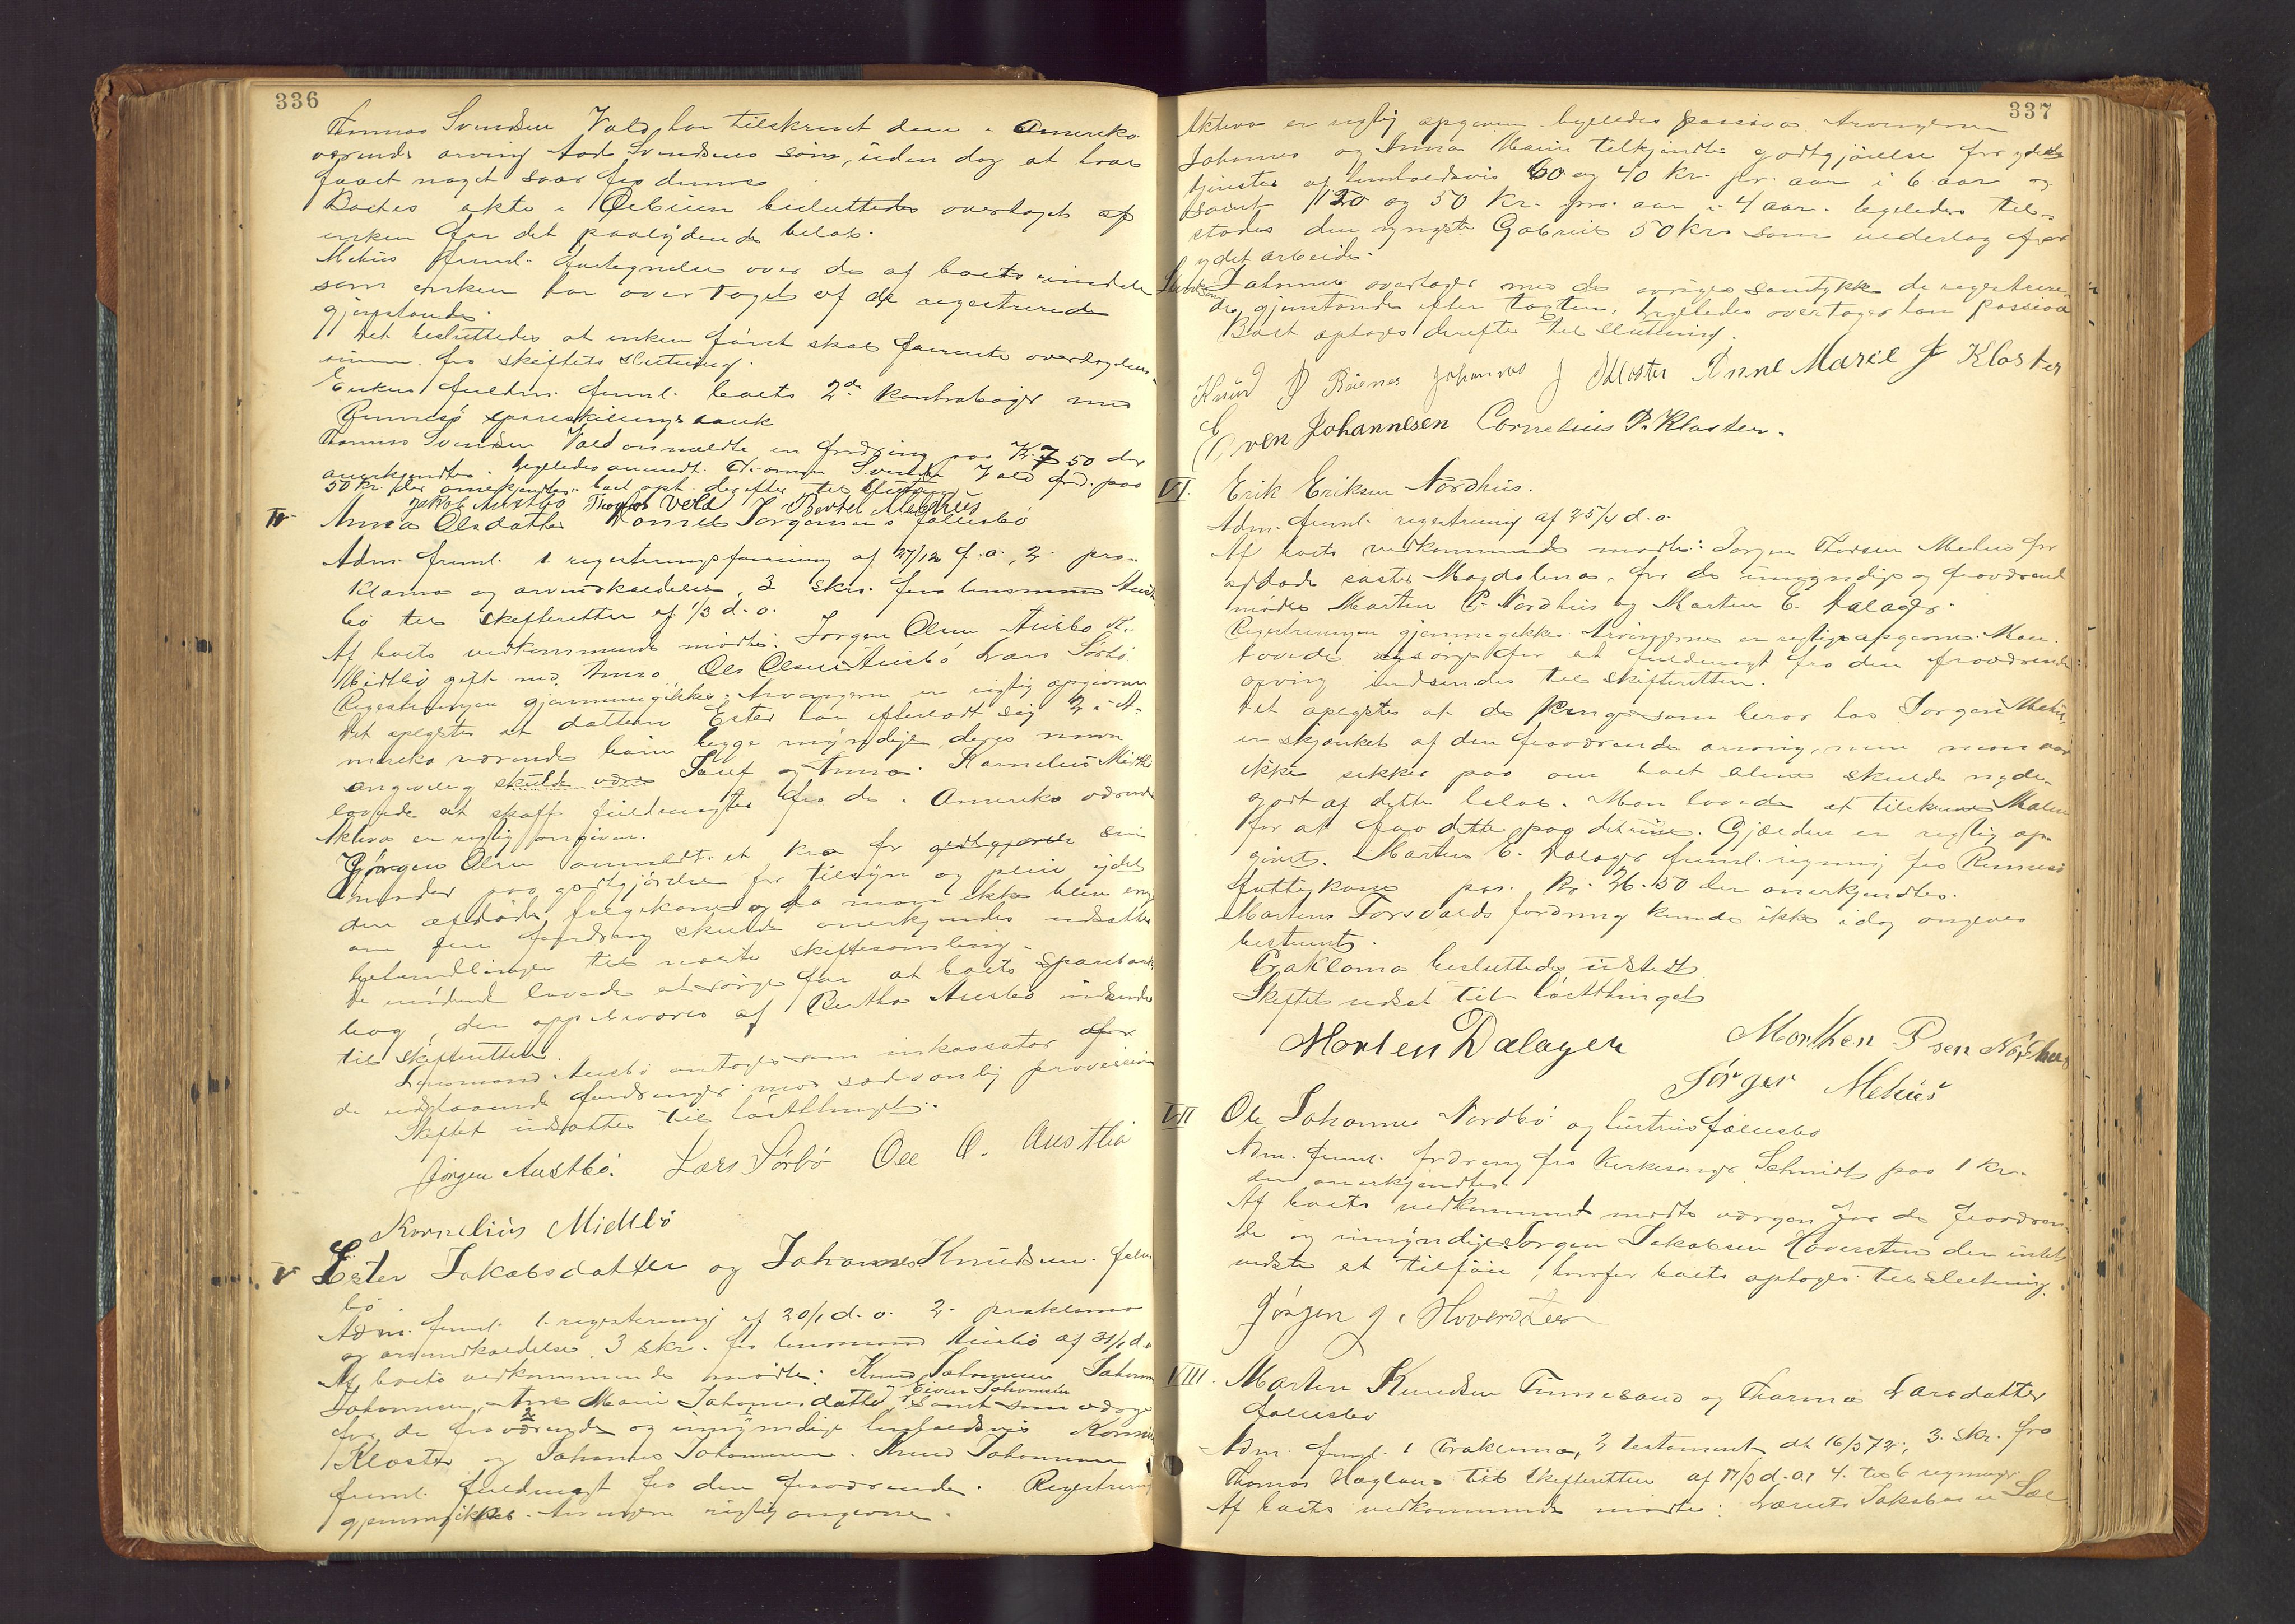 336
Thomas Svendsen Vold har tilskrevet den i Amerika
værende arving Aad Svendsens søn, uden dog at have
faaet noget svar fra denne
Boets aktie i Oelbien besluttedes overtaget af
enken for det paalydende beløb.
Mehus freml. fortegnelse over de af boets eiendele
som enken har overtaget af de registrerede
gjenstande.
Det besluttedes at enken først skal forrente overtagelses-
summen fra skiftets slutning.
Enkens fuldm. freml. boets 2de kontrabøger med
Rennesø spareskillingsbank
Thomas Svendsen Vold anmeldte en fordring paa Kr. 7.50 der
anerkjendtes. Ligeledes anmeldt. Thomas Svendsen Vold ford. paa
50 Kr. der anerkjendtes. boet opt. derefter til slutning
Jakob Austbø Thomas Vold Bertel Mehus
IV Anna Olsdatter Daniel Jørgensens fællesbo
Adm. freml. 1 registreringsforretning af 27/12 f.a., 2. pro-
klama og arveindkaldelse, 3 skr. fra lensmand Aust-
bø til skifteretten af 1/3 d.a.
Af boets vedkommende mødte: Jørgen Olsen Austbø K.
Midtbø gift med Anna, Ole Olsen Austbø Lars Sørbø.
Registreringen gjennemgikkes. Arvingerne er rigtig opgivne
Det oplystes at datteren Ester har efterladt sig 2 i A-
merika værende børn begge myndige, deres navn
angivelig skulde være Josef og Anna. Kornelius Midtbø
lovede at skaffe fuldmagter fra de i Amerika værende
Aktiva er rigtig angiven.
Jørgen Olsen anmeldte et krav for godtgjørelse sin
moder paa godtgjørelse for tilsyn og pleie ydet
den afdøde følgekone og da man ikke blev enig
om den fordring skulde anerkjendes udsattes
behandlingen til næste skiftesamling.
De mødende lovede at sørge for at boets sparebank-
bog, der opbevares af Bertha Austbø indsendes
til skifteretten.
Lensmand Austbø antoges som inkassator for
de udestaaende fordringer mod sædvanlig provision
Skiftet udsattes til høstthinget.
Jørgen Austbø. Lars Sørbø Ole O. Austbø
Kornelius Midtbø
V Ester Jakobsdatter og Johannes Knudsen fælles
bo
Adm. freml. 1. registrering af 20/1 d.a. 2. proklama
og arveindkaldelse, 3 skr. fra lensmand Austbø af 31/1 d.a.
Af boets vedkommende mødte: Knud Johannesen Johannes
Johannesen, Ane Marie Johannesdatter, Even Johannesen samt som værge
for de fraværende og umyndige henholdsvis Kornelius
Kloster og Johannes Johannesen. Knud Johannesen
freml. fuldmagt fra den fraværende. Registrering
gjennemgikkes. Arvingerne rigtig angivne.
337
Aktiva er rigtig opgiven ligeledes passiva. Arvingerne
Johannes og Anna Marie tilkjendtes godtgjørelse for ydede
tjenester af henholdsvis 60 og 40 kr. pr. aar i 6 aar og
samt 120 og 50 kr. pro. aar i 4 aar. ligeledes til-
stodes den yngste Gabriel 50 kr. som vederlag for
ydet arbeide.
Johannes overtager med de øvriges samtykke de registrere-
de gjenstande efter taxten, ligeledes overtager han passiva
Boet optages derefter til slutning.
Knud J Reienes Johannes J Kloster Anne Marie J Kloster
Even Johannesen Cornelius P. Kloster.
VI. Erik Eriksen Nordhus.
Adm. freml. registrering af 25/4 d.a.
Af boets vedkommende mødte: Jørgen Thorsen Mehus for
afdøde søster Magdalena, for de umyndige og fraværende
mødte Morten P. Nordhus og Morten E. Dalager.
Registreringen gjennemgikkes. Arvingerne er rigtige opgivne. Man
lovede at sørge for at fuldmagt fra den fraværende
arving indsendes til skifteretten.
Det oplystes at de penge som beror hos Jørgen Mehus,
er skjænket af den fraværende arving, men man var
ikke sikker paa om boet alene skulde nyde
godt af dette beløb. Man lovede at tilskrive Malene
for at faa dette paa det rene. Gjælden er rigtig op-
givet. Morten E. Dalager freml. regning fra Rennesø
fattigkasse paa kr. 26.50 der anerkjendtes.
Martin Torsvolds fordring kunde ikke idag angives
bestemt.
Proklama besluttedes udstedt
Skiftet udsat til høstthinget
Morten Dalager Morthen Psen Nordhus
Jørgen Mehus
VII Ole Johannes Nordbø og hustrus fællesbo
Adm. freml. fordring fra kirkesanger Schmidt paa 1 kr.
der anerkjendtes.
Af boets vedkommende mødte værgen for de fraværen-
de og umyndige Jørgen Jakobsen Hoversten der intet
vidste at tilføie, hvorfor boet optoges til slutning.
Jørgen J. Hoversteen
VIII. Morten Knudsen Finnesand og Thorina Larsdatter
fællesbo
Adm. freml. 1 Proklama, 2 testament dt 16/5 72, 3. skr. fra
Thomas Haglund til skifteretten af 17/3 d.a. 4. til 6 regninger
Af boets vedkommende mødte: Laurits Jakobsen